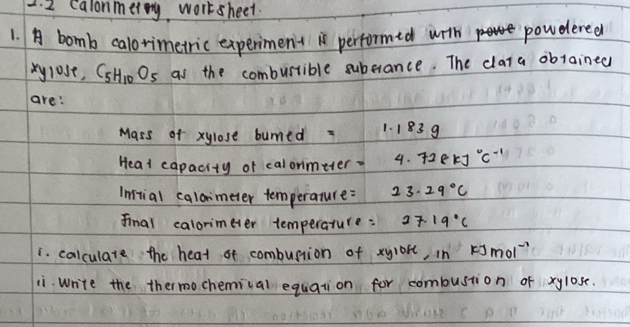 2.2 Calorimetry worksheet.
1. A bomb calorimetric experiment is performed with powdered
xylose, C5H10O5 as the combustible substance. The data obtained
are:
Mass of xylose burned = 1.183 g
Heat capacity of calorimeter = 4.728 kJ °C⁻¹
Initial calorimeter temperature = 23.29°C
Final calorimeter temperature = 27.19°C
i. calculate the heat of combustion of xylose, in kJ mol⁻¹
ii. Write the thermochemical equation for combustion of xylose.